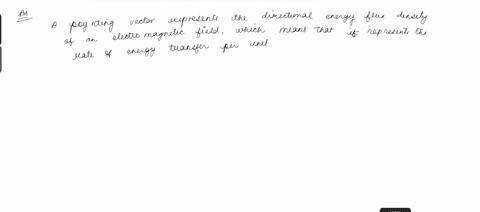 Ans
A poynting vector represents the directional energy flux density
of an electromagnetic field, which means that it represents the
rate of energy transfer per unit